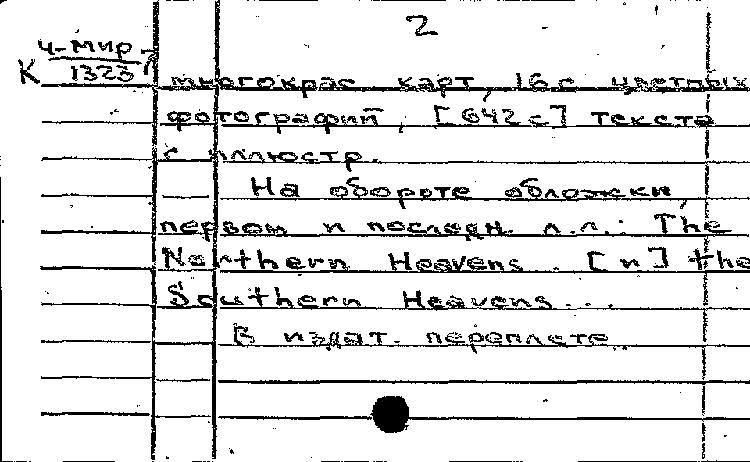 2
4-Мир
К 1323
многокрас. карт, 16 с. цветных
фотографий, [642 с] текста
с иллюстр.
На обороте обложки,
первом и последн. л.л.: The
Northern Heavens. [и] the
Southern Heavens...
В издат. переплете.